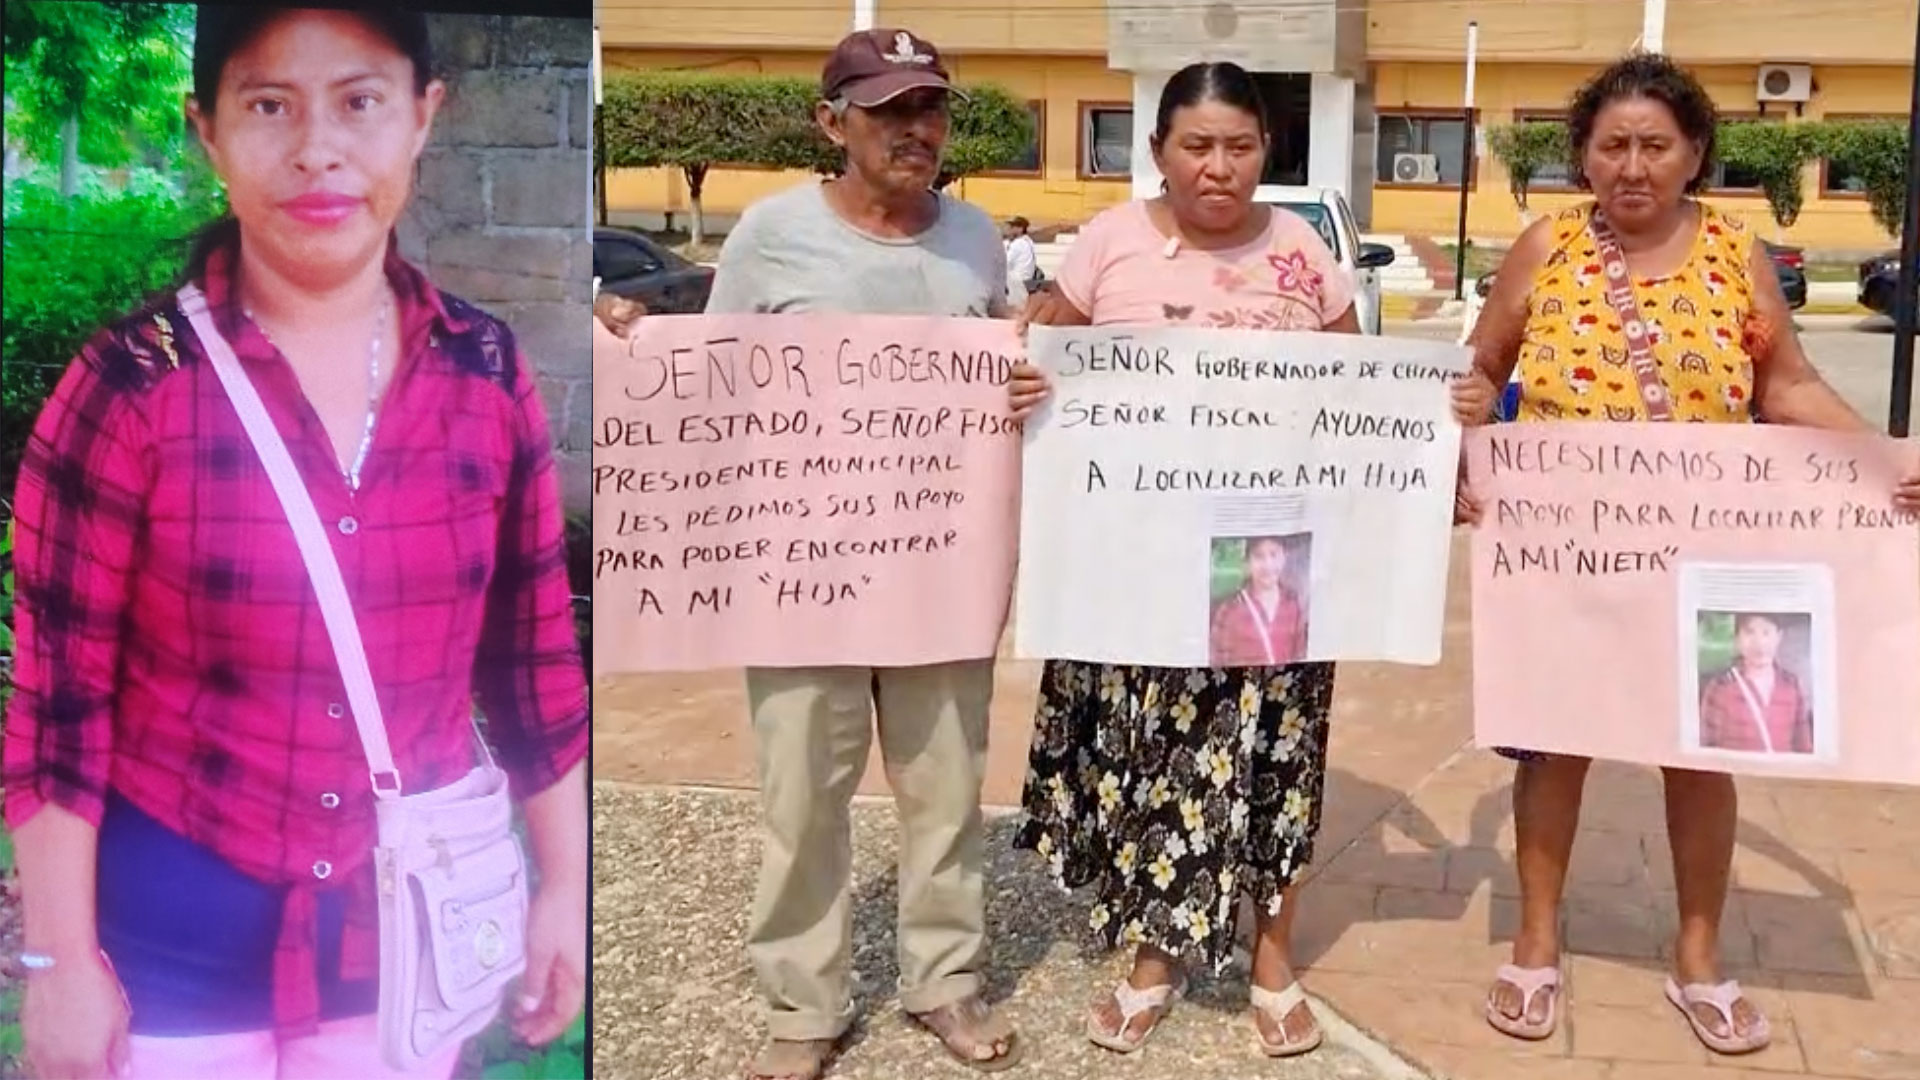 SEÑOR GOBERNAD
DEL ESTADO, SEÑOR FISCA
PRESIDENTE MUNICIPAL
LES PEDIMOS SUS APOYO
PARA PODER ENCONTRAR
A MI "HIJA"
SEÑOR GOBERNADOR DE CHIAPA
SEÑOR FISCAL: AYUDENOS
A LOCALIZAR A MI HIJA
NECESITAMOS DE SUS
APOYO PARA LOCALIZAR PRONTO
A MI "NIETA"